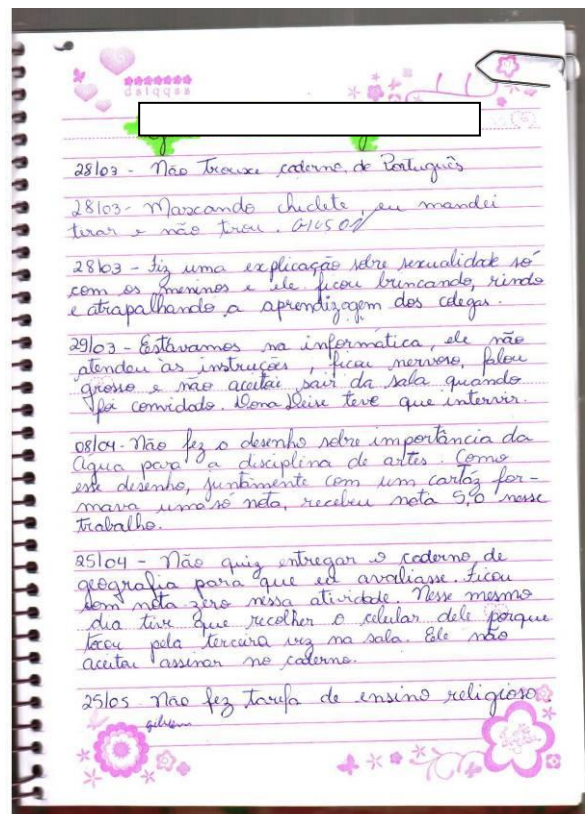 28/03 - Não Trouxe caderno, de Português
28/03 - Mascando chiclete, eu mandei
tirar e não tirou.
28/03 - Fiz uma explicação sobre sexualidade só
com os meninos e ele ficou brincando, rindo
e atrapalhando a aprendizagem dos colegas.
29/03 - Estávamos na informática, ele não
atendeu às instruções, ficou nervoso, falou
grosso e não aceitou sair da sala quando
foi convidado. Dona Deise teve que intervir.
08/04 - Não fez o desenho sobre importância da
água para a disciplina de artes. Como
este desenho, juntamente com um cartaz for-
mava uma só nota, recebeu nota 5,0 nesse
trabalho.
25/04 - Não quiz entregar o caderno de
geografia para que eu avaliasse. Ficou
com nota zero nessa atividade. Nesse mesmo
dia tive que recolher o celular dele porque
tocou pela terceira vez na sala. Ele não
aceitou assinar no caderno.
25/05 - Não fez tarefa de ensino religioso.